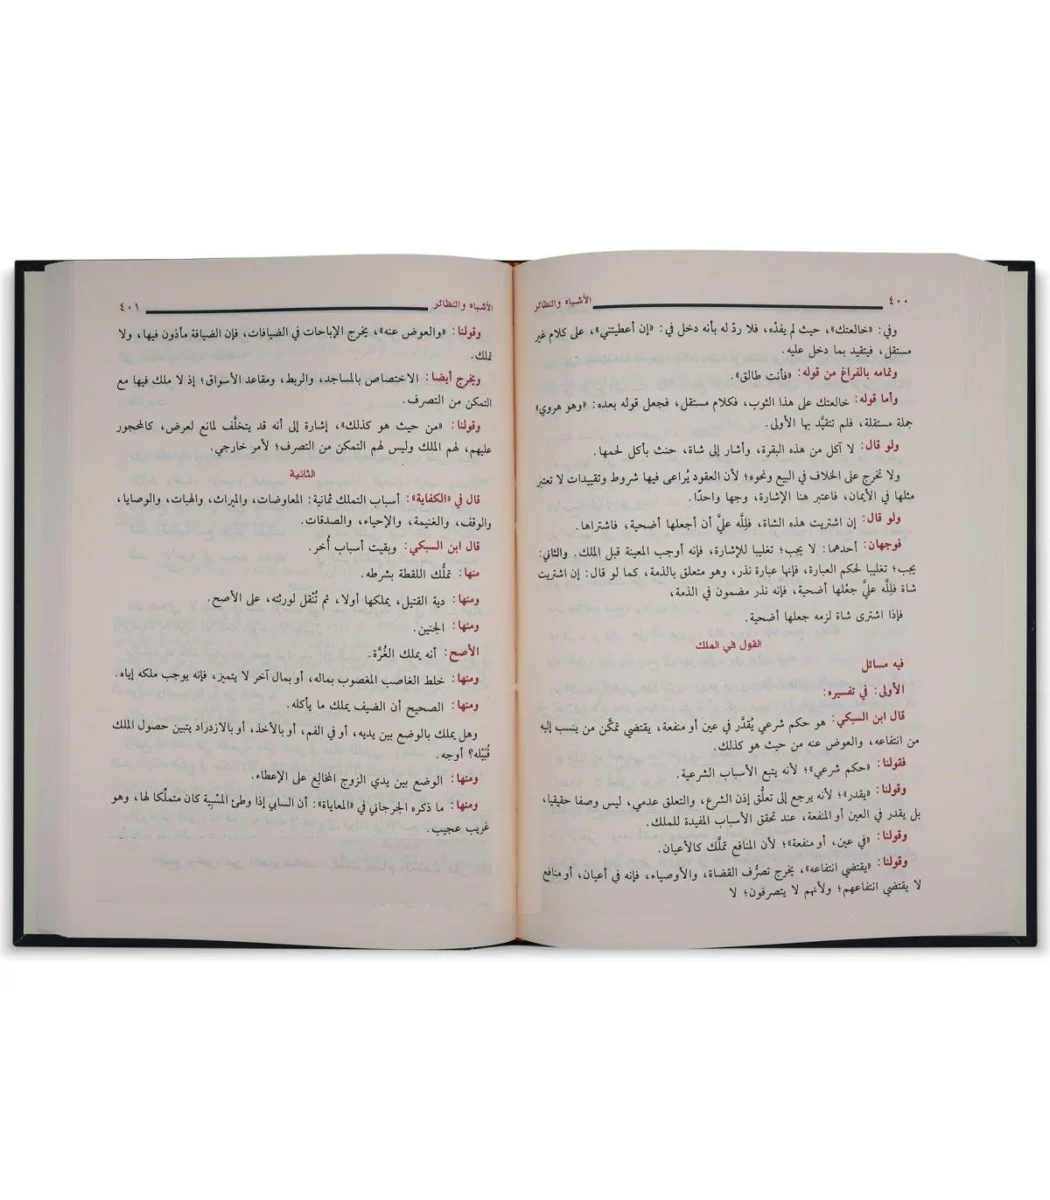 ٤٠٠ الأشباه والنظائر
وفي: «خالعتك»، حيث لم يفدْه، فلا ردّ له بأنه دخل في: «إن أعطيتني»، على كلام غير
مستقل، فيتقيد بما دخل عليه.
وتمامه بالفراغ من قوله: «فأنت طالق».
وأما قوله: خالعتك على هذا الثوب، فكلام مستقل، فجعل قوله بعده: «وهو هروي»
جملة مستقلة، فلم تتقيَّد بها الأولى.
ولو قال: لا آكل من هذه البقرة، وأشار إلى شاة، حنث بأكل لحمها.
ولا تخرج على الخلاف في البيع ونحوه؛ لأن العقود يُراعى فيها شروط وتقييدات لا تعتبر
مثلها في الأيمان، فاعتبر هنا الإشارة، وجها واحدًا.
ولو قال: إن اشتريت هذه الشاة، فلِلَّه عليَّ أن أجعلها أضحية، فاشتراها.
فوجهان: أحدهما: لا يجب؛ تغليبا للإشارة، فإنه أوجب المعينة قبل الملك. والثاني:
يجب؛ تغليبا لحكم العبارة، فإنها عبارة نذر، وهو متعلق بالذمة، كما لو قال: إن اشتريت
شاة فلِلَّه عليَّ جعْلها أضحية، فإنه نذر مضمون في الذمة،
فإذا اشترى شاة لزمه جعلها أضحية.
القول في الملك
فيه مسائل
الأولى: في تفسيره:
قال ابن السبكي: هو حكم شرعي يُقدَّر في عين أو منفعة، يقتضي تمكّن من ينسب إليه
من انتفاعه، والعوض عنه من حيث هو كذلك.
فقولنا: «حكم شرعي»؛ لأنه يتبع الأسباب الشرعية.
وقولنا: «يقدر»؛ لأنه يرجع إلى تعلُّق إذن الشرع، والتعلق عدمي، ليس وصفا حقيقيا،
بل يقدر في العين أو المنفعة، عند تحقق الأسباب المفيدة للملك.
وقولنا: «في عين، أو منفعة»؛ لأن المنافع تملَّك كالأعيان.
وقولنا: «يقتضي انتفاعه»، يخرج تصرُّف القضاة، والأوصياء، فإنه في أعيان، أو منافع
لا يقتضي انتفاعهم؛ ولأنهم لا يتصرفون؛ لا
الأشباه والنظائر ٤٠١
وقولنا: «والعوض عنه»، يخرج الإباحات في الضيافات، فإن الضيافة مأذون فيها، ولا
تملك.
ويخرج أيضا: الاختصاص بالمساجد، والربط، ومقاعد الأسواق؛ إذ لا ملك فيها مع
التمكن من التصرف.
وقولنا: «من حيث هو كذلك»، إشارة إلى أنه قد يتخلَّف لمانع لعرض، كالمحجور
عليهم، لهم الملك وليس لهم التمكن من التصرف؛ لأمر خارجي.
الثانية
قال في «الكفاية»: أسباب التملك ثمانية: المعاوضات، والميراث، والهبات، والوصايا،
والوقف، والغنيمة، والإحياء، والصدقات.
قال ابن السبكي: وبقيت أسباب أُخر.
منها: تملُّك اللقطة بشرطه.
ومنها: دية القتيل، يملكها أولا، ثم تُنْقل لورثته، على الأصح.
ومنها: الجنين.
الأصح: أنه يملك الغُرَّة.
ومنها: خلط الغاصب المغصوب بماله، أو بمال آخر لا يتميز، فإنه يوجب ملكه إياه.
ومنها: الصحيح أن الضيف يملك ما يأكله.
وهل يملك بالوضع بين يديه، أو في الفم، أو بالأخذ، أو بالازدراد يتبين حصول الملك
قُبَيْله؟ أوجه.
ومنها: الوضع بين يدي الزوج المخالِع على الإعطاء.
ومنها: ما ذكره الجرجاني في «المعاياة»: أن السابي إذا وطئ المسْبية كان متملِّكا لها، وهو
غريب عجيب.